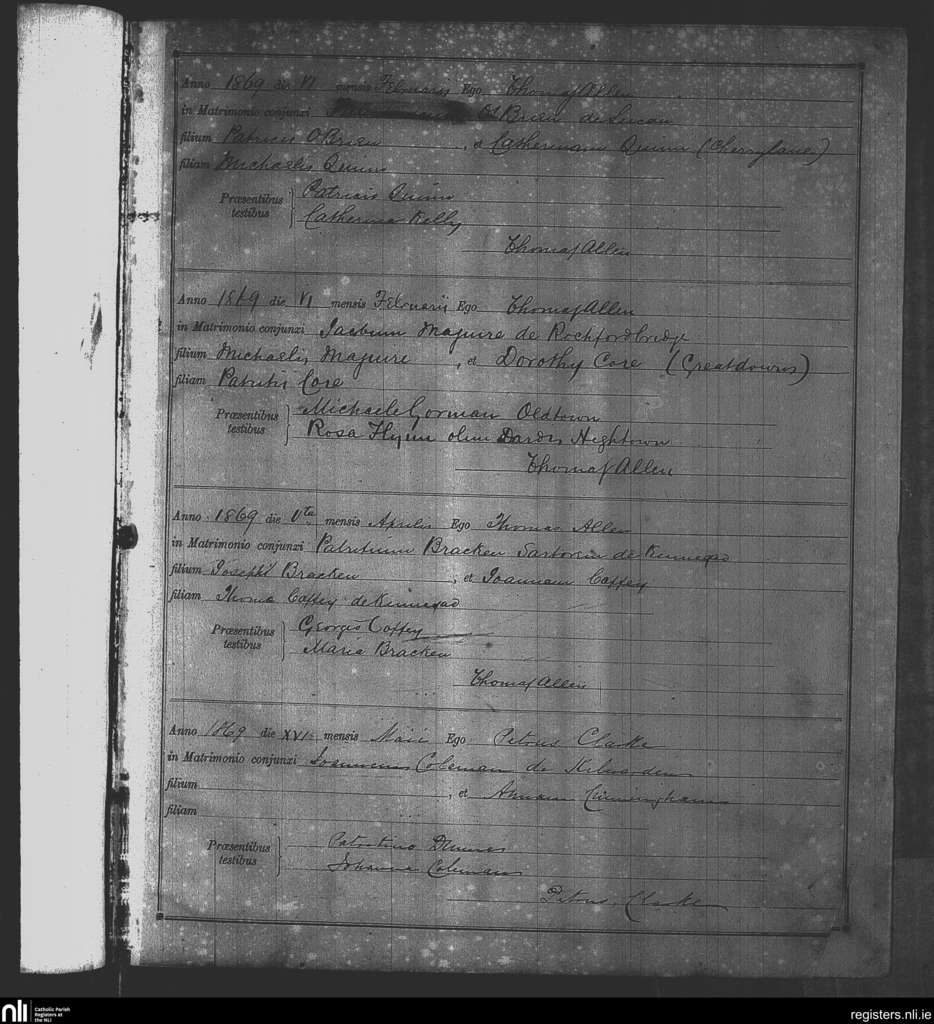 Anno 1869 die VI mensis Februarii Ego Thomas Allen
in Matrimonio conjunxi O'Brien de Lucan
filium Patricii O'Brien , et Catherinam Quinn (Cherrylane)
filiam Michaelis Quinn
Præsentibus testibus Patricio Quinn
Catherina Kelly
Thomas Allen
Anno 1869 die VI mensis Februarii Ego Thomas Allen
in Matrimonio conjunxi Jacobum Maguire de Rochfordbridge
filium Michaelis Maguire , et Dorothy Core (Greatdowns)
filiam Patritii Core
Præsentibus testibus Michaele Gorman Oldtown
Rosa Flynn olim Dardis Hightown
Thomas Allen
Anno 1869 die Vta mensis Aprilis Ego Thomas Allen
in Matrimonio conjunxi Patritium Bracken Sartorem de Kinnegad
filium Josephi Bracken , et Joannam Coffey
filiam Thoma Coffey de Kinnegad
Præsentibus testibus Georgio Coffey
Maria Bracken
Thomas Allen
Anno 1869 die XVI mensis Maii Ego Petrus Clarke
in Matrimonio conjunxi Joannem Coleman de
filium , et Annam Cunningham
filiam
Præsentibus testibus Patritino
Johanna Coleman
Petrus Clarke
nli Catholic Parish
Registers at
the NLI
registers.nli.ie